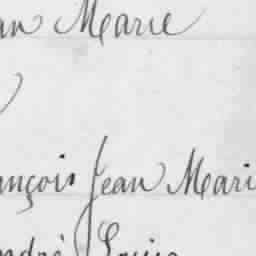 an Marie
ançois Jean Mari
ndré Louis